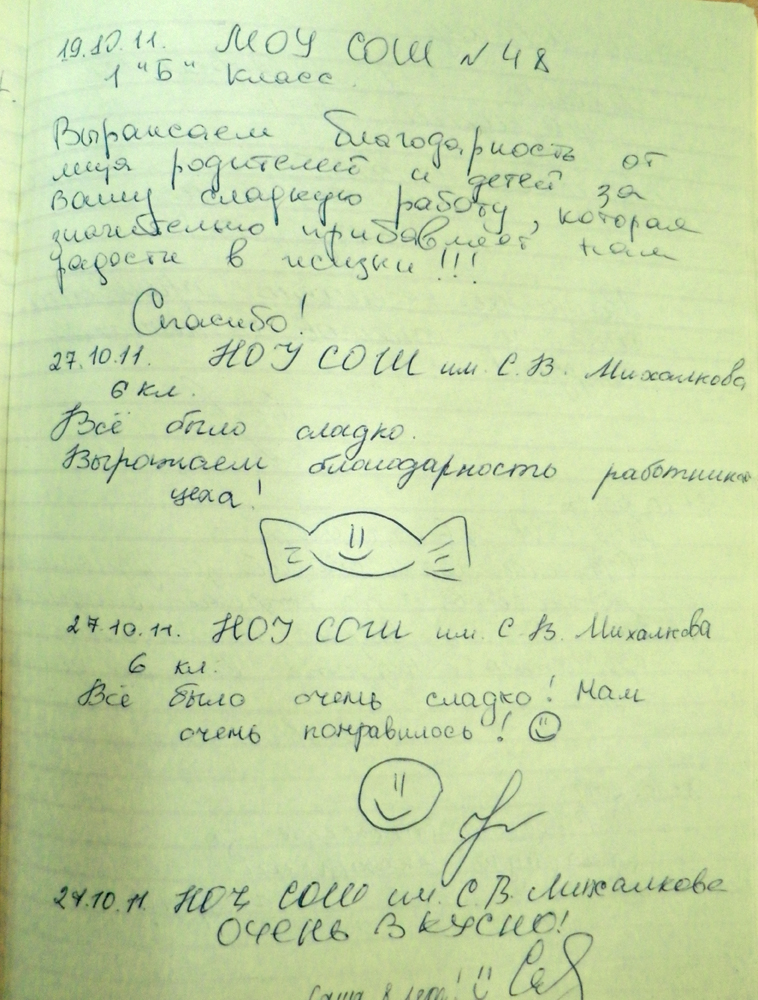 19.10.11. МОУ СОШ №48
1 "Б" класс.
Выражаем благодарность от
лица родителей и детей за
вашу сладкую работу, которая
значительно прибавляет нам
радости в жизни!!!
Спасибо!
27.10.11. НОУ СОШ им. С.В. Михалкова
6 кл.
Всё было сладко.
Выражаем благодарность работникам
цеха!
27.10.11. НОУ СОШ им. С.В. Михалкова
6 кл.
Всё было очень сладко! Нам
очень понравилось!
27.10.11. НОУ СОШ им. С.В. Михалкова
ОЧЕНЬ ВКУСНО!
Саша 8 лет!